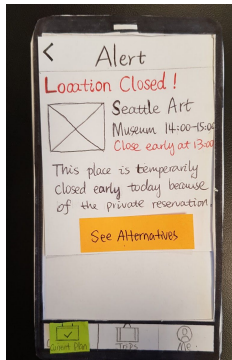 Alert
Location Closed!
Seattle Art
Museum 14:00-15:00
Close early at 13:00
This place is temporarily
closed early today because
of the private reservation.
See Alternatives
Current Plan
Trips
Me